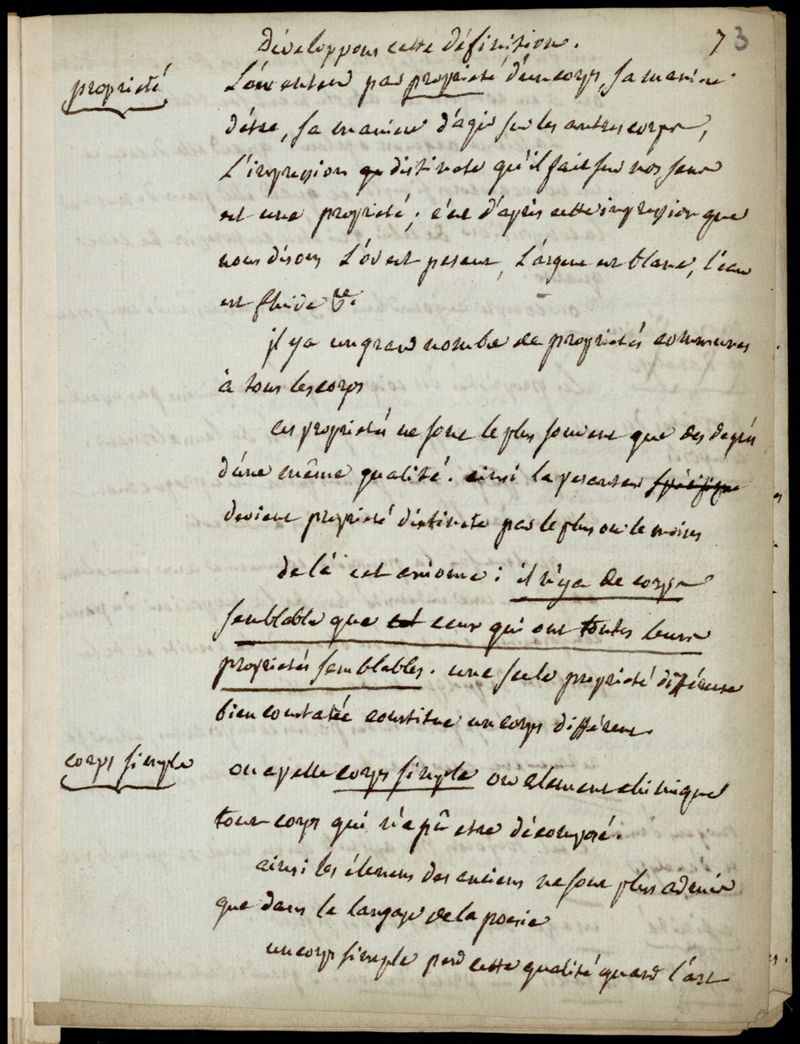 Développons cette définition.
73
propriété
L'on entend par propriété d'un corps, sa maniere
d'être, sa maniere d'agir sur les autres corps,
L'impression distincte qu'il fait sur nos sens
est une propriété; c'est d'après cette impression que
nous disons L'or est pesant, L'argent est blanc, l'eau
est fluide &c.
il y a un grand nombre de propriétés communes
à tous les corps
ces propriétés ne sont le plus souvent que des degrés
d'une même qualité. ainsi la pesanteur spécifique
devient propriété distincte par le plus ou le moins
de là cet axiome: il n'y a de corps
semblable que ceux qui ont toutes leurs
propriétés semblables. une seule propriété différente
bien constatée constitue un corps différent.
corps simple
on apelle corps simple ou element chimique
tout corps qui n'a pû etre décomposé.
ainsi les élemens des anciens ne sont plus admis
que dans le langage de la poesie
un corps simple perd cette qualité quand l'art